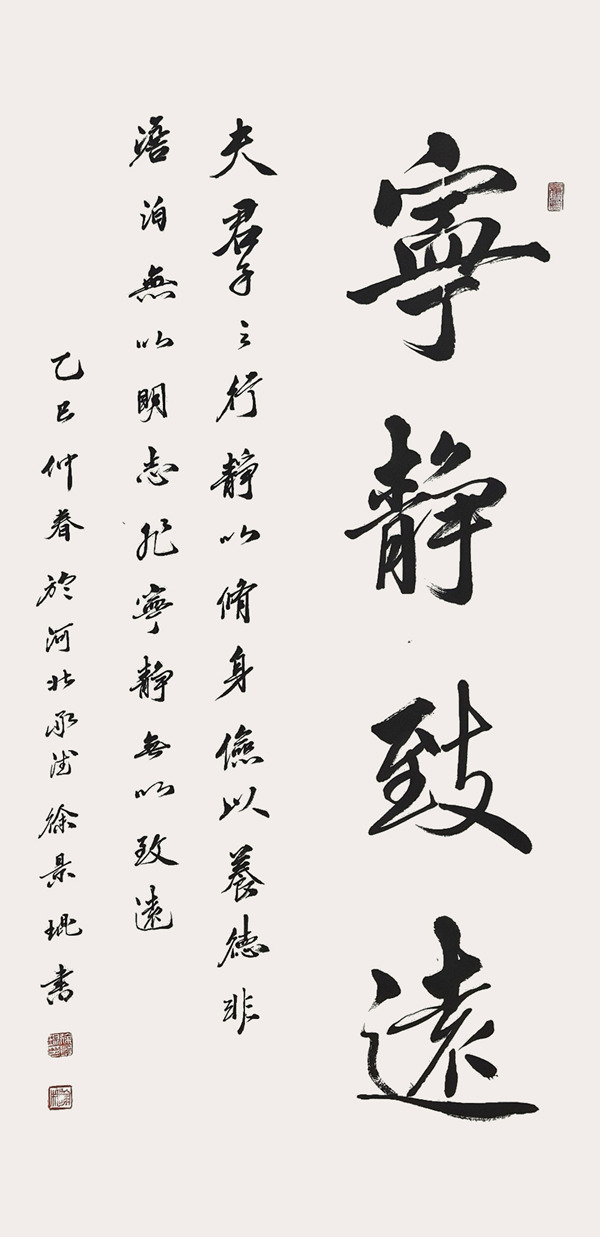 寧靜致遠
夫君子之行靜以脩身儉以養德非
澹泊無以明志非寧靜無以致遠
乙巳仲春於河北承德徐景琨書